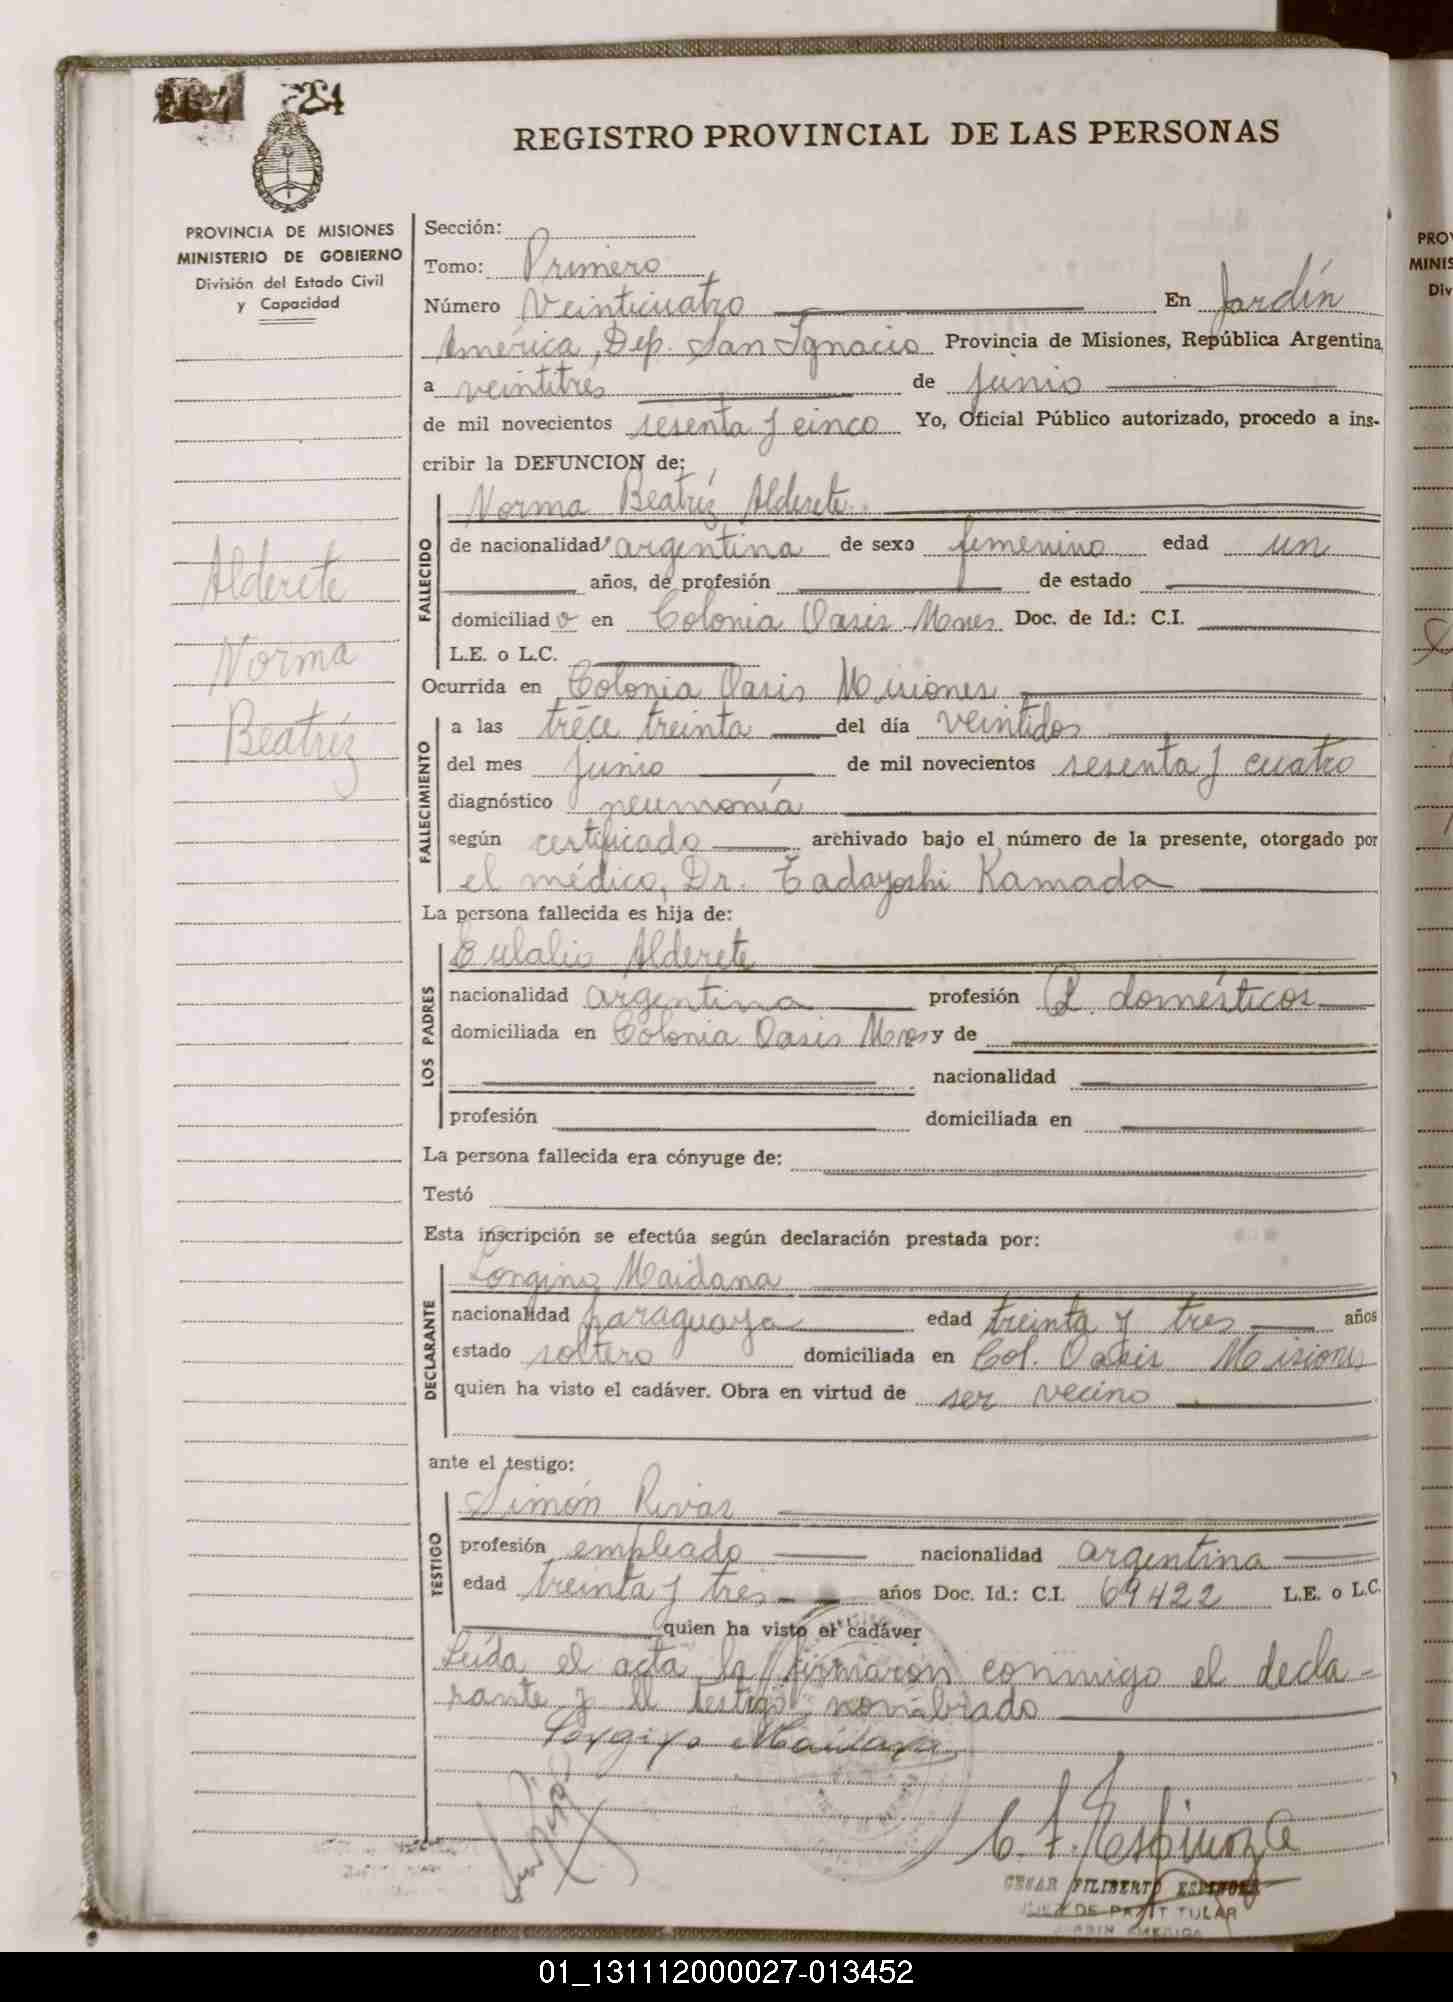 24
REGISTRO PROVINCIAL DE LAS PERSONAS
PROVINCIA DE MISIONES
MINISTERIO DE GOBIERNO
División del Estado Civil
y Capacidad
Alderete
Norma
Beatríz
Sección:
Tomo: Primero
Número Veinticuatro En Jardín
América, Dep. San Ignacio Provincia de Misiones, República Argentina,
a veintitres de junio
de mil novecientos sesenta y cinco Yo, Oficial Público autorizado, procedo a ins-
cribir la DEFUNCION de:
FALLECIDO
Norma Beatríz Alderete
de nacionalidad argentina de sexo femenino edad un
años, de profesión de estado
domiciliado en Colonia Oasis Mnes Doc. de Id.: C.I.
L.E. o L.C.
Ocurrida en Colonia Oasis Misiones
FALLECIMIENTO
a las trece treinta del día veintidos
del mes junio de mil novecientos sesenta y cuatro
diagnóstico neumonía
según certificado archivado bajo el número de la presente, otorgado por
el médico, Dr. Tadayoshi Kamada
La persona fallecida es hija de:
LOS PADRES
Eulalia Alderete
nacionalidad argentina profesión Q. domésticos
domiciliada en Colonia Oasis Mnes y de
nacionalidad
profesión domiciliada en
La persona fallecida era cónyuge de:
Testó
Esta inscripción se efectúa según declaración prestada por:
DECLARANTE
Longino Maidana
nacionalidad paraguaya edad treinta y tres años
estado soltero domiciliada en Col. Oasis Misiones
quien ha visto el cadáver. Obra en virtud de ser vecino
ante el testigo:
TESTIGO
Simón Rivas
profesión empleado nacionalidad argentina
edad treinta y tres años Doc. Id.: C.I. 69422 L.E. o L.C.
quien ha visto el cadáver
Leída el acta, la firmaron conmigo el decla-
rante y el testigo nombrado
Longino Maidana
C. F. Espinoza
CESAR FILIBERTO ESPINOZA
JUEZ DE PAZ TITULAR
JARDIN AMERICA
PROV
MINIS
Div
01_131112000027-013452